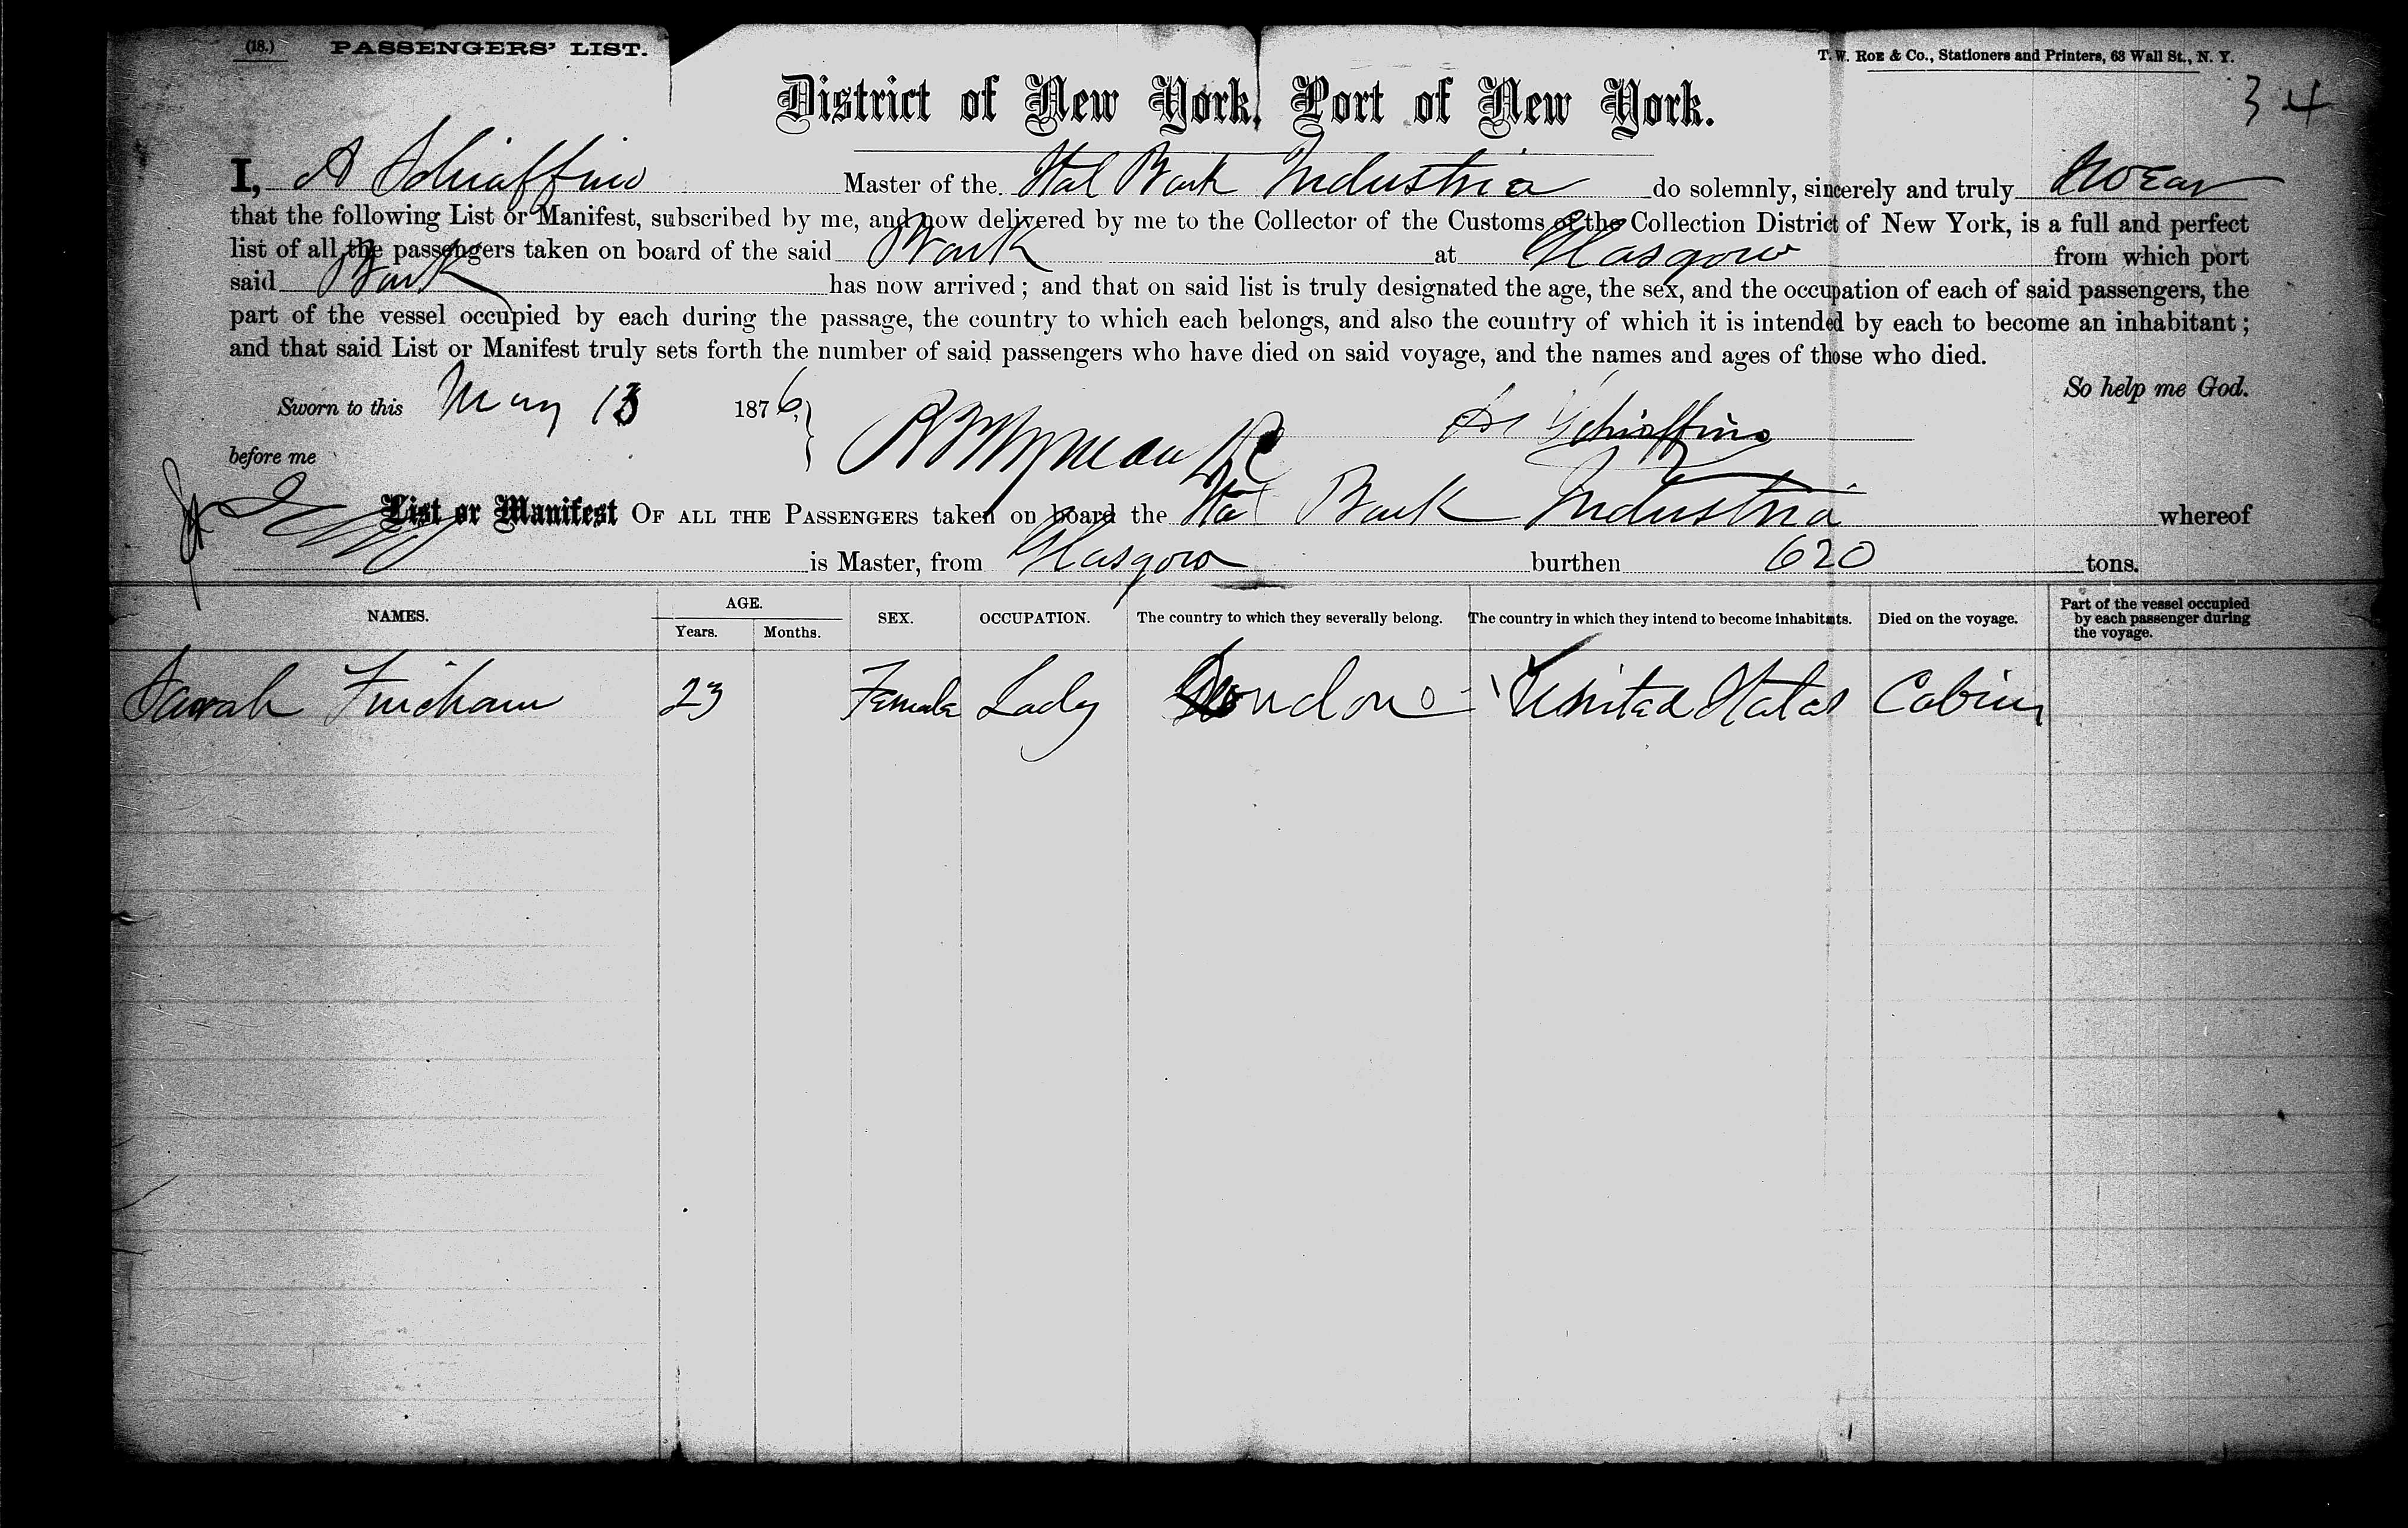 (18.) PASSENGERS' LIST.
T. W. ROE & Co., Stationers and Printers, 63 Wall St., N. Y.
34
District of New York, Port of New York.
I, A Schiaffino Master of the Ital Bark Industria do solemnly, sincerely and truly swear
that the following List or Manifest, subscribed by me, and now delivered by me to the Collector of the Customs of the Collection District of New York, is a full and perfect
list of all the passengers taken on board of the said Bark at Glasgow from which port
said Bark has now arrived; and that on said list is truly designated the age, the sex, and the occupation of each of said passengers, the
part of the vessel occupied by each during the passage, the country to which each belongs, and also the country of which it is intended by each to become an inhabitant;
and that said List or Manifest truly sets forth the number of said passengers who have died on said voyage, and the names and ages of those who died.
So help me God.
Sworn to this May 13 1876 A Schiaffino
before me
List or Manifest OF ALL THE PASSENGERS taken on board the Ital Bark Industria whereof
is Master, from Glasgow burthen 620 tons.
NAMES. AGE. Years. Months. SEX. OCCUPATION. The country to which they severally belong. The country in which they intend to become inhabitants. Died on the voyage. Part of the vessel occupied by each passenger during the voyage.
Sarah Fincham 23 Female Lady London United States Cabin